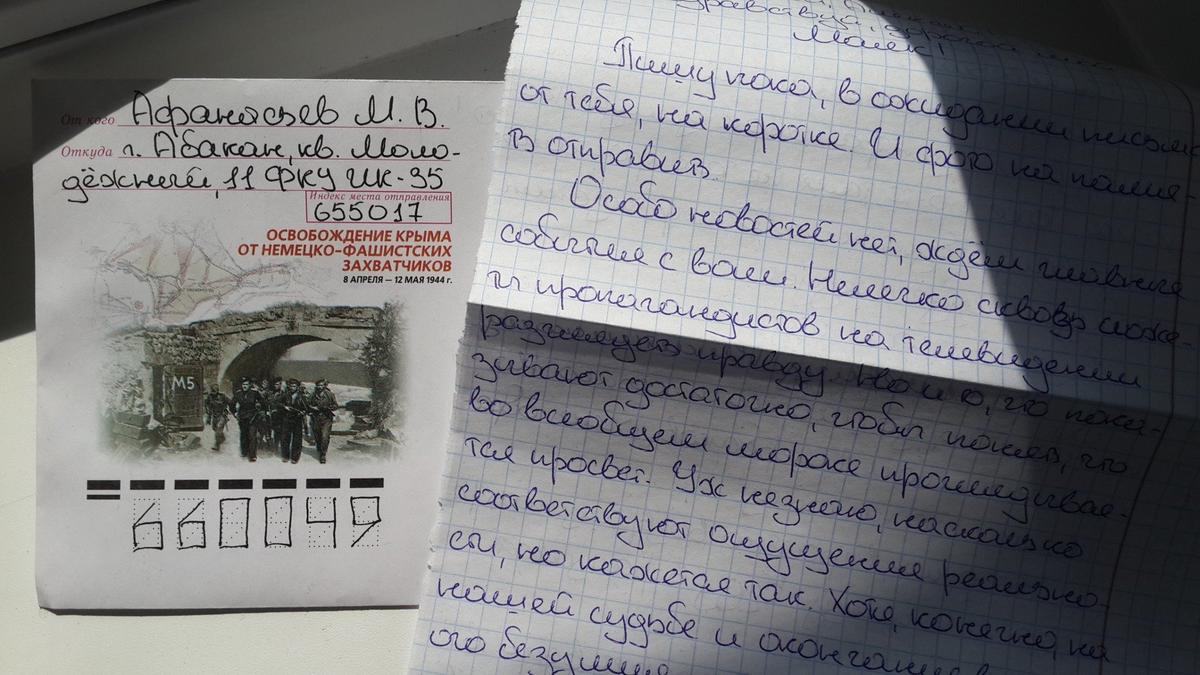 От кого Афанасьев М. В.
Откуда г. Абакан, кв. Моло-
дёжный, 11 ФКУ ИК-35
Индекс места отправления
655017
ОСВОБОЖДЕНИЕ КРЫМА
ОТ НЕМЕЦКО-ФАШИСТСКИХ
ЗАХВАТЧИКОВ
8 АПРЕЛЯ – 12 МАЯ 1944 г.
М5
660049
Пишу пока, в ожидании письма
от тебя, на коротке. И фото на памя-
отправить.
Особо новостей нет, ждём главные
события с воли. Нелегко сквозь сюже-
ты пропагандистов на телевидении
разглядеть правду. Но и то, что пока-
зывают достаточно, чтобы понять, что
во всеобщем мороке проглядывае-
тся просвет. Уж незнаю, насколько
соответствуют ощущения реально-
сти, но кажется так. Хотя, конечно, на
нашей судьбе и окончание
ого безумия